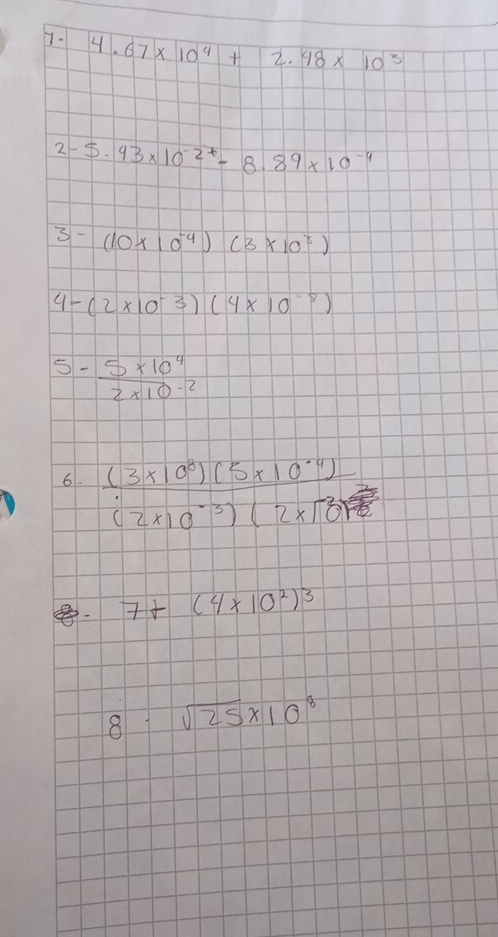 1- 4.67 x 10⁴ + 2.98 x 10³
2- 5.93 x 10⁻² - 8.89 x 10⁻⁴
3- (10 x 10⁻⁴) (3 x 10⁵)
4- (2 x 10⁻³) (4 x 10⁻⁸)
5- 5 x 10⁴
2 x 10⁻²
6. (3 x 10⁸) (5 x 10⁻⁴)
(2 x 10⁻³) (2 x
7+ (4 x 10²)³
8. √25 x 10⁸